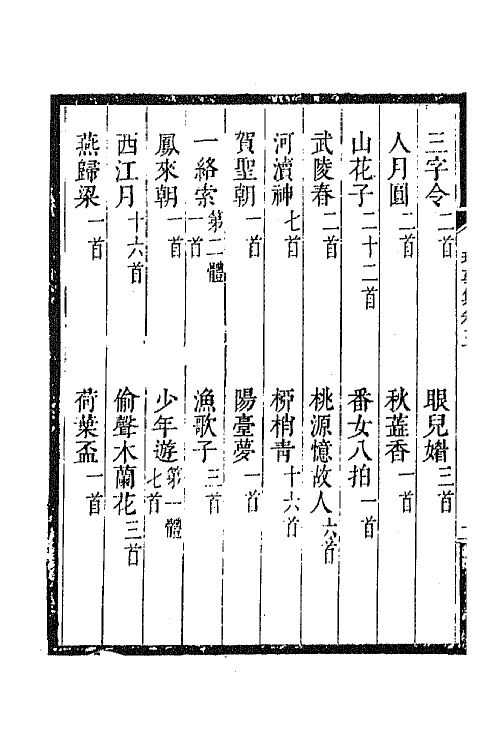 三字令二首　眼兒媚三首
人月圓二首　秋蕋香一首
山花子二十二首　番女八拍一首
武陵春二首　桃源憶故人六首
河瀆神七首　桺梢青十六首
賀聖朝一首　陽臺夢一首
一絡索第二體一首　漁歌子三首
鳳來朝一首　少年遊第一體七首
西江月十六首　偷聲木蘭花三首
燕歸梁一首　荷葉盃一首